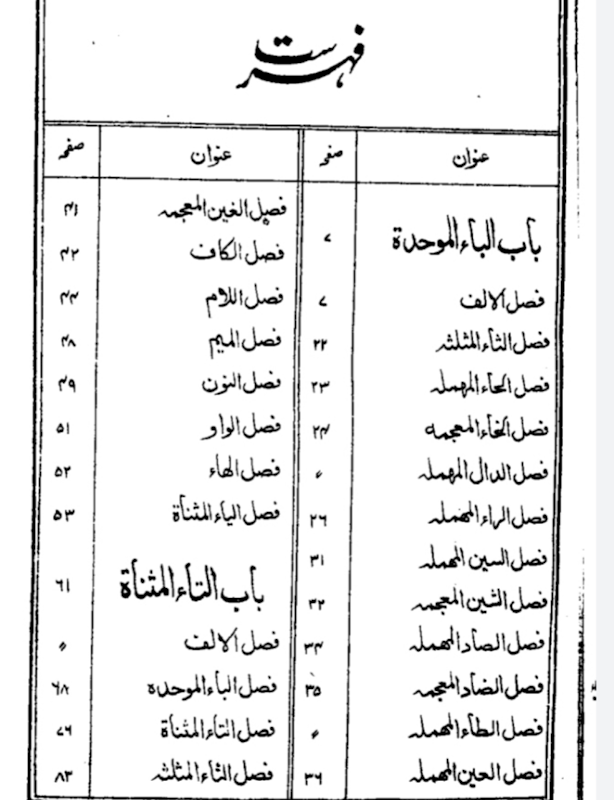 فهرست
عنوان صفحہ
باب الباء الموحدة ۷
فصل الالف ۷
فصل الثاء المثلثہ ۲۲
فصل الحاء المهملہ ۲۳
فصل الخاء المعجمہ ۲۴
فصل الدال المهملہ 〃
فصل الراء المهملہ ۲۶
فصل السین المهملہ ۳۱
فصل الشین المعجمہ ۳۲
فصل الصاد المهملہ ۳۴
فصل الضاد المعجمہ ۳۵
فصل الطاء المهملہ 〃
فصل العین المهملہ ۳۶
عنوان صفحہ
فصل الغین المعجمہ ۴۱
فصل الکاف ۴۲
فصل اللام ۴۴
فصل المیم ۴۸
فصل النون ۴۹
فصل الواو ۵۱
فصل الهاء ۵۲
فصل الیاء المثناة ۵۳
باب التاء المثناة ۶۱
فصل الالف 〃
فصل الباء الموحدہ ۶۸
فصل التاء المثناة ۷۶
فصل الثاء المثلثہ ۸۳